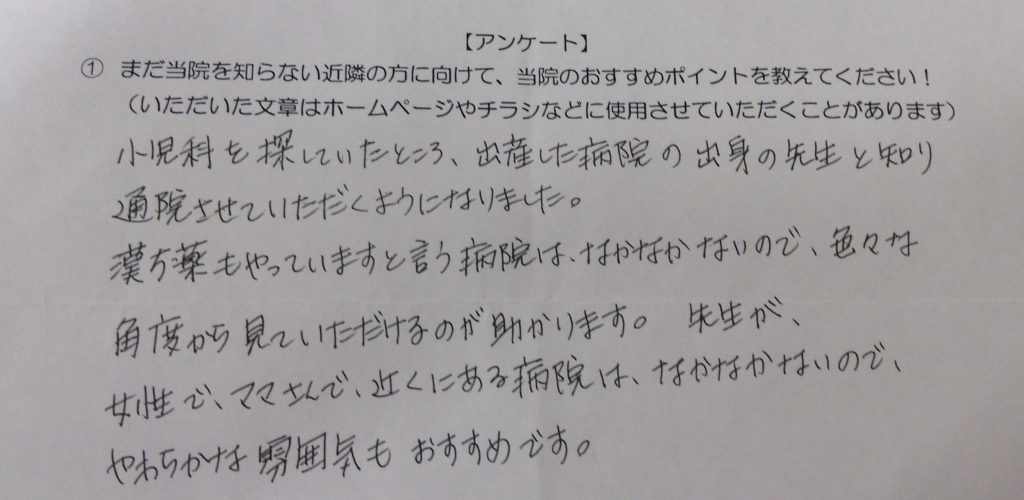 【アンケート】
① まだ当院を知らない近隣の方に向けて、当院のおすすめポイントを教えてください！
（いただいた文章はホームページやチラシなどに使用させていただくことがあります）
小児科を探していたところ、出産した病院の出身の先生と知り
通院させていただくようになりました。
漢方薬もやっていますと言う病院は、なかなかないので、色々な
角度から見ていただけるのが助かります。 先生が、
女性で、ママさんで、近くにある病院は、なかなかないので、
やわらかな雰囲気もおすすめです。